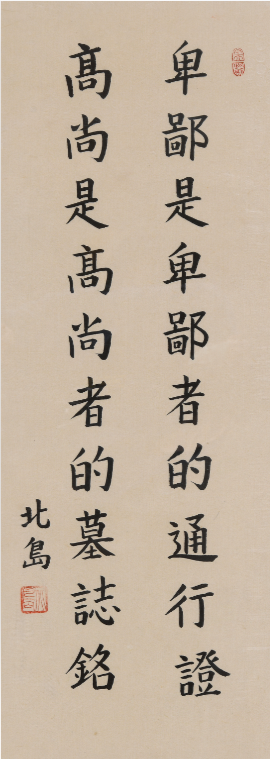 卑鄙是卑鄙者的通行證
髙尚是髙尚者的墓誌銘
北島